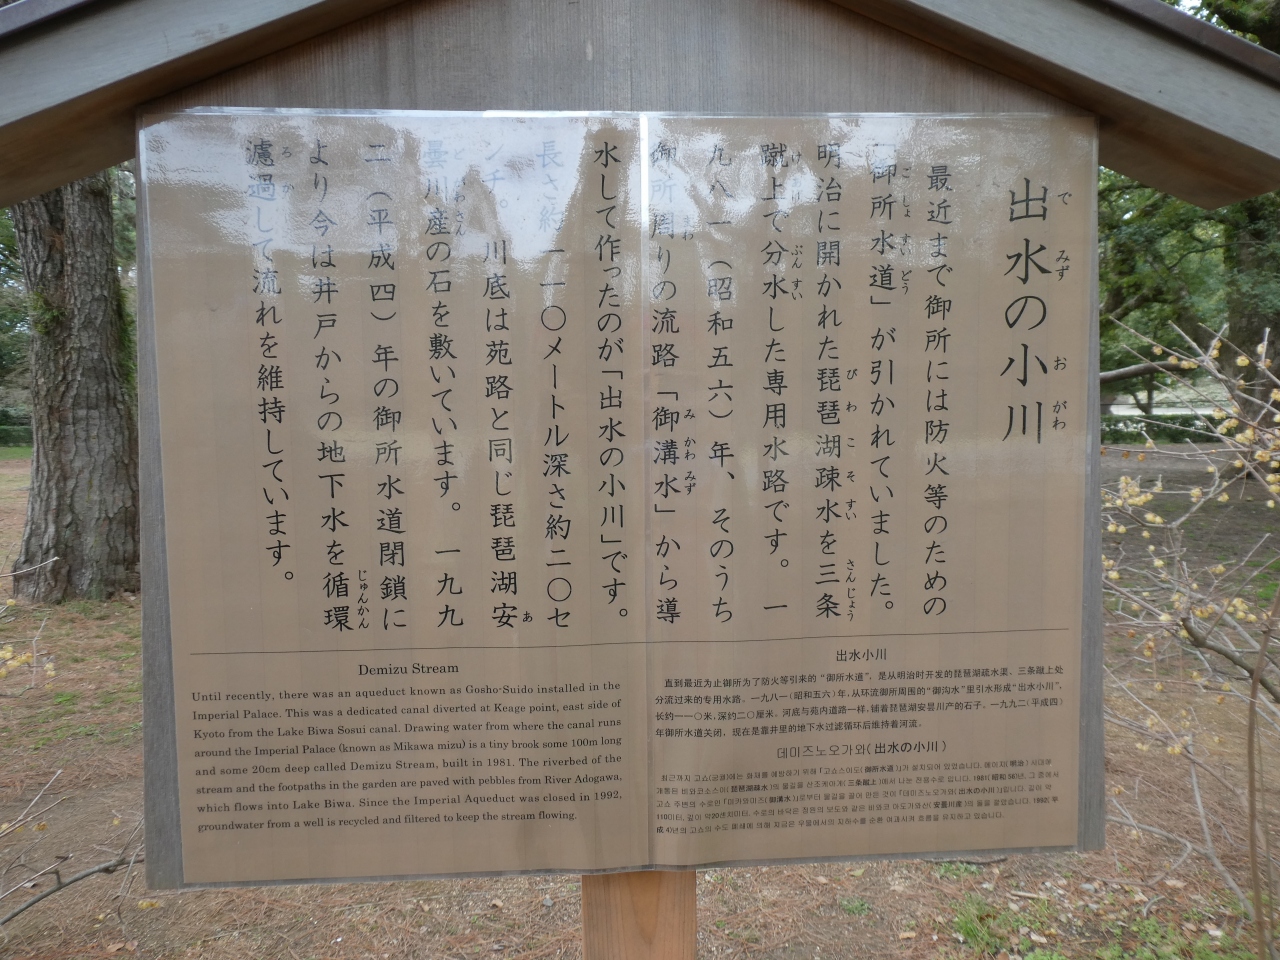 出水の小川
最近まで御所には防火等のための
「御所水道」が引かれていました。
明治に開かれた琵琶湖疎水を三条
蹴上で分水した専用水路です。一
九八一(昭和五六)年、そのうち
御所周りの流路「御溝水」から導
水して作ったのが「出水の小川」です。
長さ約一一〇メートル深さ約二〇セ
ンチ。川底は苑路と同じ琵琶湖安
曇川産の石を敷いています。一九九
二(平成四)年の御所水道閉鎖に
より今は井戸からの地下水を循環
濾過して流れを維持しています。
Demizu Stream
Until recently, there was an aqueduct known as Gosho-Suido installed in the
Imperial Palace. This was a dedicated canal diverted at Keage point, east side of
Kyoto from the Lake Biwa Sosui canal. Drawing water from where the canal runs
around the Imperial Palace (known as Mikawa mizu) is a tiny brook some 100m long
and some 20cm deep called Demizu Stream, built in 1981. The riverbed of the
stream and the footpaths in the garden are paved with pebbles from River Adogawa,
which flows into Lake Biwa. Since the Imperial Aqueduct was closed in 1992,
groundwater from a well is recycled and filtered to keep the stream flowing.
出水小川
直到最近为止御所为了防火等引来的“御所水道”，是从明治时开发的琵琶湖疏水渠、三条蹴上处
分流过来的专用水路。一九八一(昭和五六)年,从环流御所周围的“御沟水”里引水形成“出水小川”,
长约一一〇米,深约二〇厘米。河底与苑内道路一样,铺着琵琶湖安昙川产的石子。一九九二(平成四)
年御所水道关闭，现在是靠井里的地下水过滤循环后维持着河流。
데미즈노오가와(出水の小川)